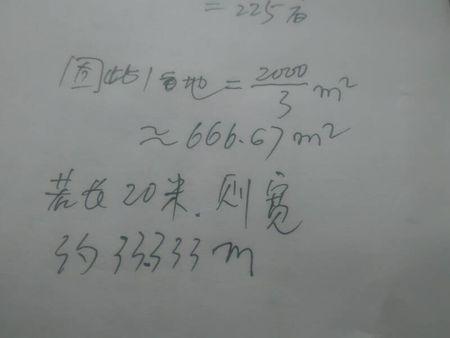 = 225亩
因此1亩地 = 2000/3 m²
≈ 666.67 m²
若长20米.则宽
约33.333 m